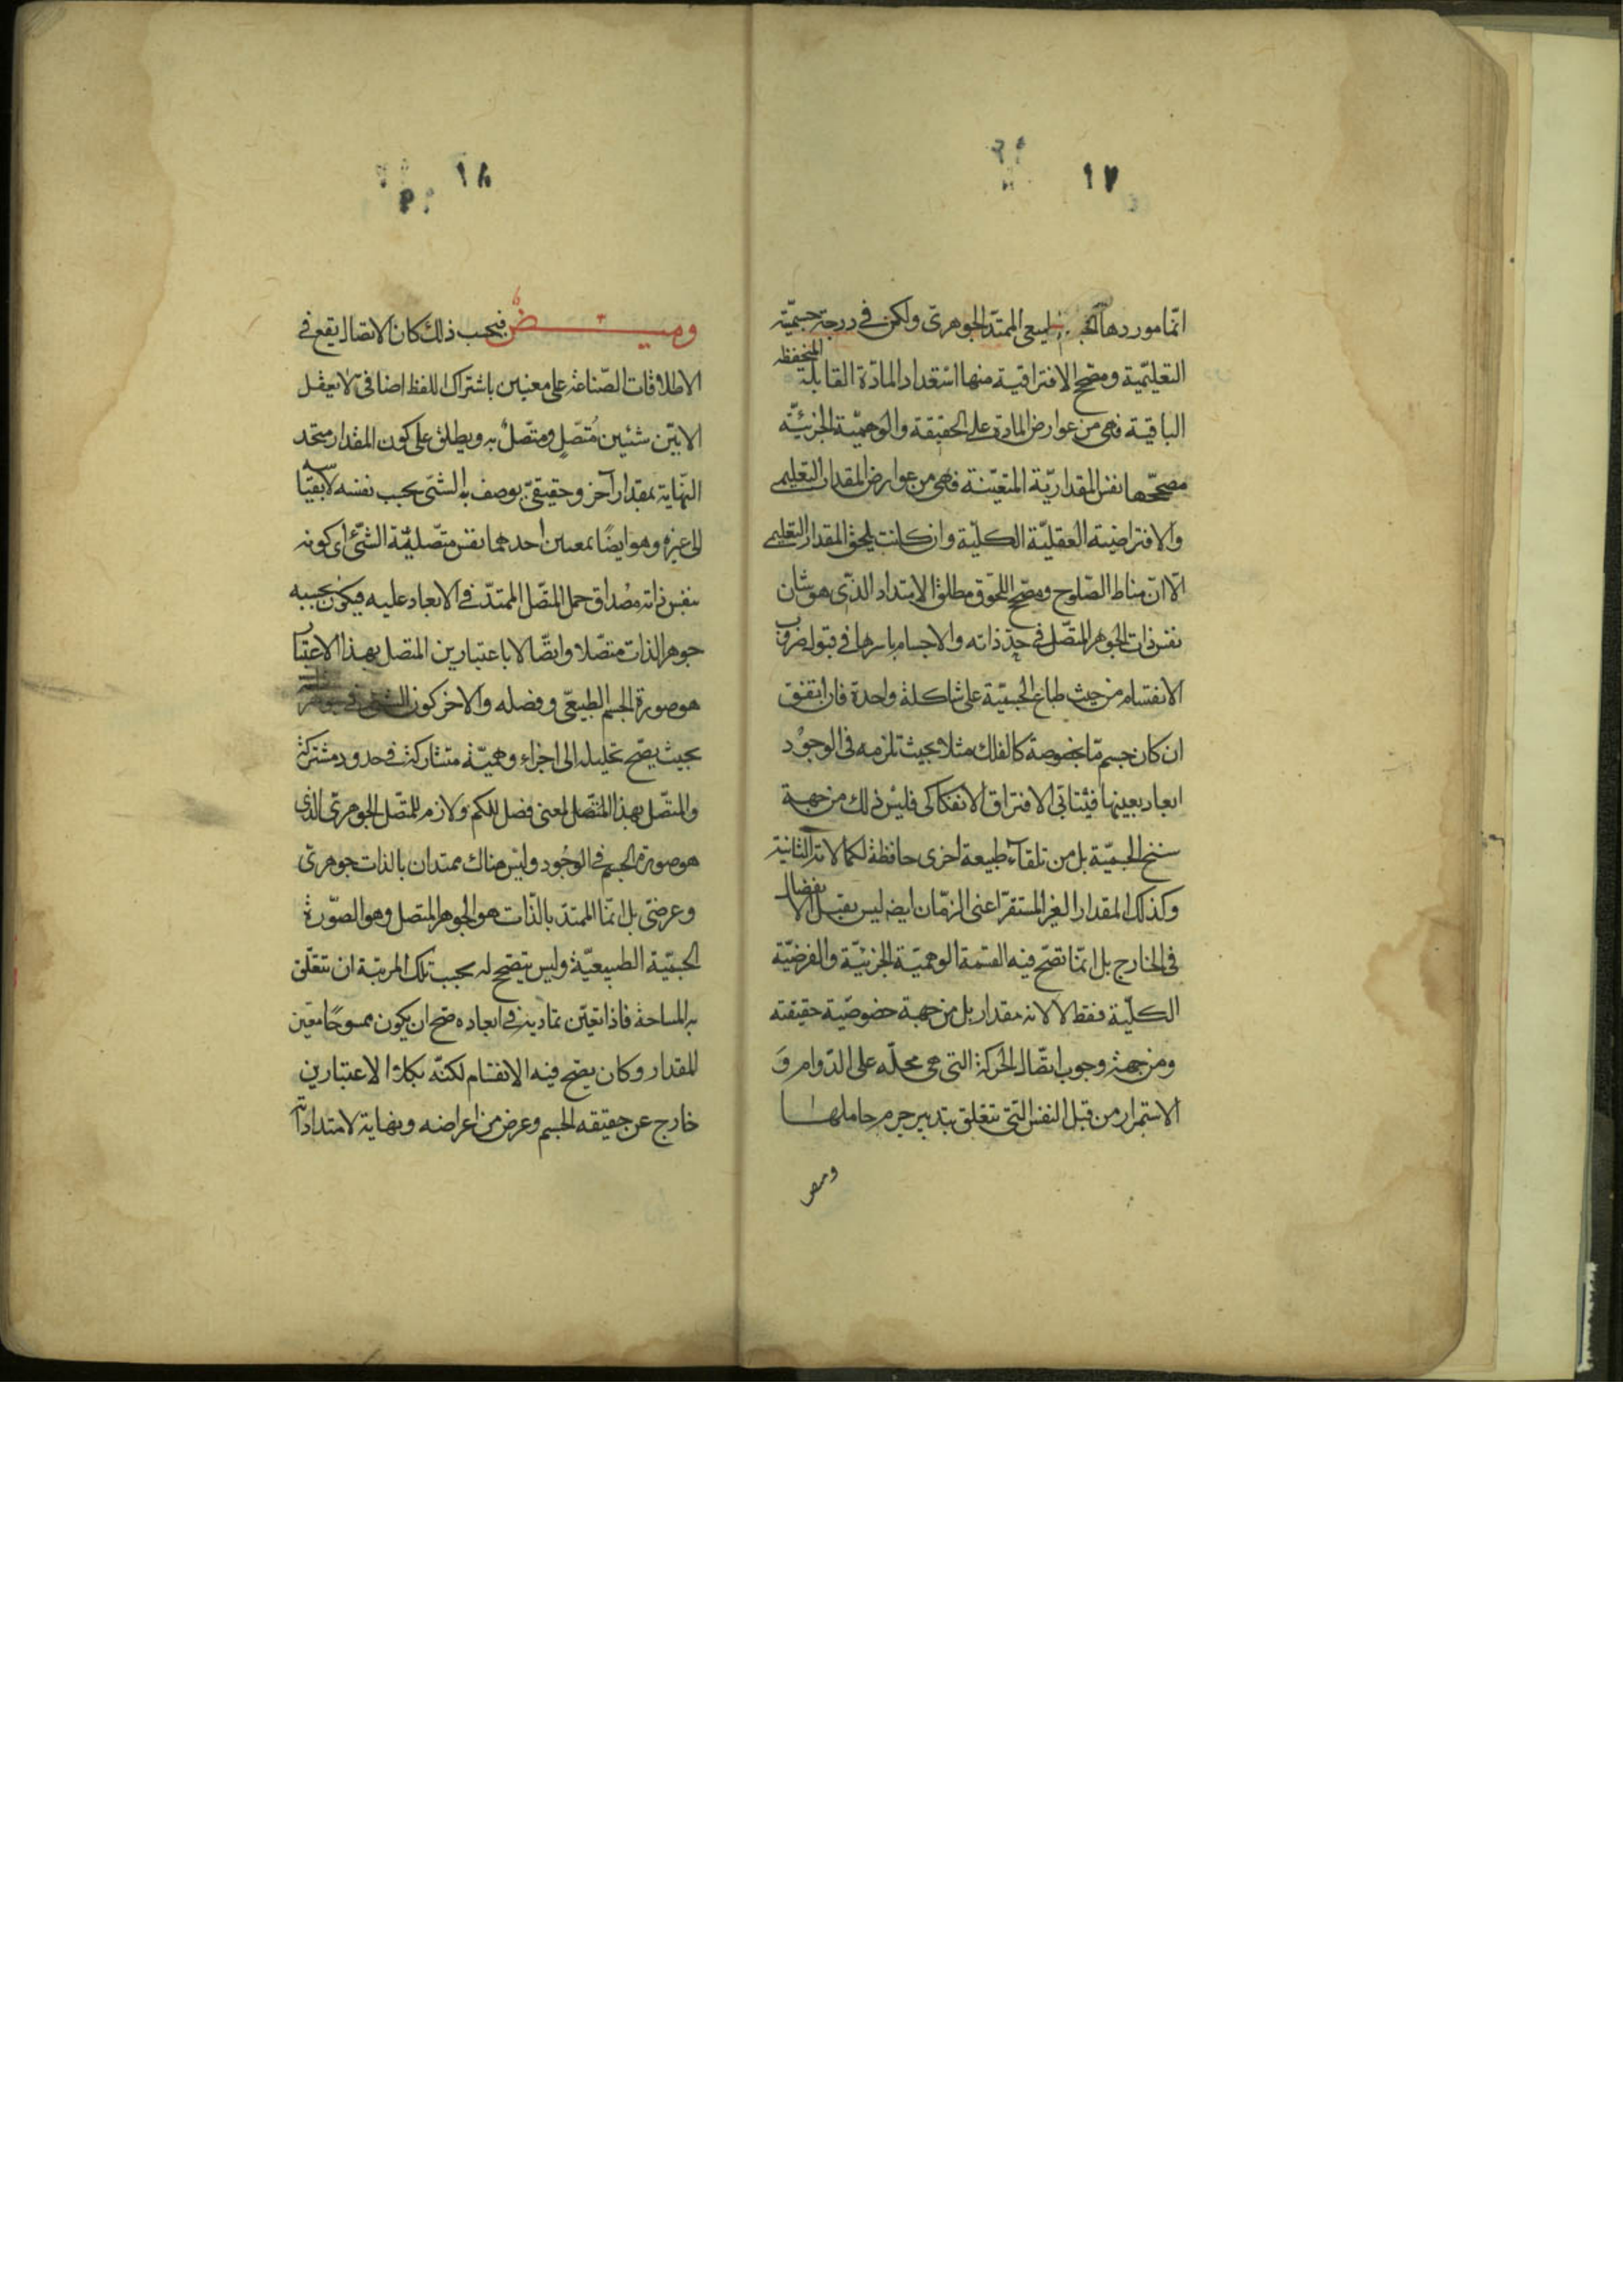 ١٧
انّما موردها الطبيعى الممتدّ الجوهرىّ ولكن فى درجة جسميّته
التعليّمية ومصحح الافتراقية منها استعداد المادّة القابلة المنحفظة
الباقية فهى من عوارض المادة على الحقيقة والوهميّة الجزئيّة
مصحّحها نفس المقداريّة المتعيّنة فهى من عوارض المقدار التعليمى
والافتراضية العقليّة الكليّة وان كانت يلحق المقدار التعليمى
الّا انّ مناط الصّلوح ومصحّح اللحوق مطلق الامتداد الذّى هو شان
نفس ذات الجوهر المتّصل فى حدّ ذاته والاجسام باسرها فى قبول ضروب
الانقسام من حيث طباع الجسميّة على شاكلة واحدة فان اتفق
ان كان جسم مّا بخصوصة كالفلك مثلا بحيث تلزمه فى الوجود
ابعاد بعينها فيتابّى الافتراق الانفكاكى فليس ذلك من جهة
سنخ الجسميّة بل من تلقاء طبيعة اخرى حافظة لكمالاته الثانية
وكذلك المقدار الغير المستقرّ اعنى الزمّان ايضه ليس يقبل الانفصال
فى الخارج بل انمّا تصّح فيه القسمة الوهميّة الجزئيّة والفرضيّة
الكليّة فقط لا لانه مقدار بل من جهة خصوصيّة حقيقته
ومن جهة وجوب اتصّال الحركة التى هى محلّه على الدّوام وَ
الاستمرار من قبل النفس التى تتعلق بتدبير جرم حاملها
ومض
١٨
وميض فبحسب ذلك كان الاتصال يقع فى
الاطلاقات الصّناعة على معنيين باشتراك اللفظ اضافى لا يعقل
الا بيّن شئيين مُتصّلٍ ومتصّلٌ به ويطلق على كون المقدار متحد
النّهاية بمقدار آخر وحقيقىّ يوصف به الشئ بحسب نفسه لا بقياسه
الى غيره وهو ايضًا بمعنيين احدهما نفس متّصليّة الشّئ اى كونه
بنفس ذاته مصداق حمل المتصّل الممتدّ فى الابعاد عليه فيكون بحسبه
جوهر الذات متصّلا واتصّالا باعتبارين المتصل بهذا الاعتبار
هو صورة الجسم الطبيعىّ وفصله والاخر كون الشئ فى
بحيث يصّح تحليله الى اجزاء وهميّة متشاركة فى حدود مشتركة
والمتصّل بهذا المعنى فصل للكم ولازم للمتصّل الجوهرىّ الذى
هو صورة الجسم فى الوجُود وليس هناك ممتدان بالذات جوهرىّ
وعرضىّ بل انمّا الممتدّ بالذّات هو الجوهر المتصل وهو الصّورة
الجسميّة الطبيعيّة وليس يتصّح له بحسب تلك المرتبة ان تتعلق
به المساحة فاذا تعيّن تماديه فى ابعاده صحّ ان يكون ممسوحًا معين
المقدار وكان يصّح فيه الانقسام لكنّه بكلا الاعتبارين
خارج عن حقيقه الجسم وعرض من اعراضه ونهاية لامتداداته